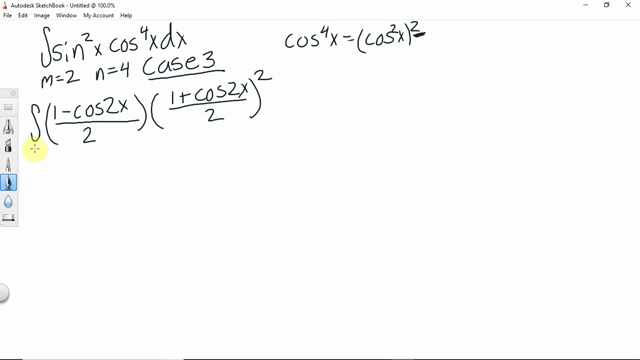 Autodesk SketchBook - Untitled @ 100.0%
File Edit Image Window My Account Help
∫sin²x cos⁴x dx
cos⁴x = (cos²x)²
m=2 n=4 case 3
∫((1-cos2x)/2)((1+cos2x)/2)²